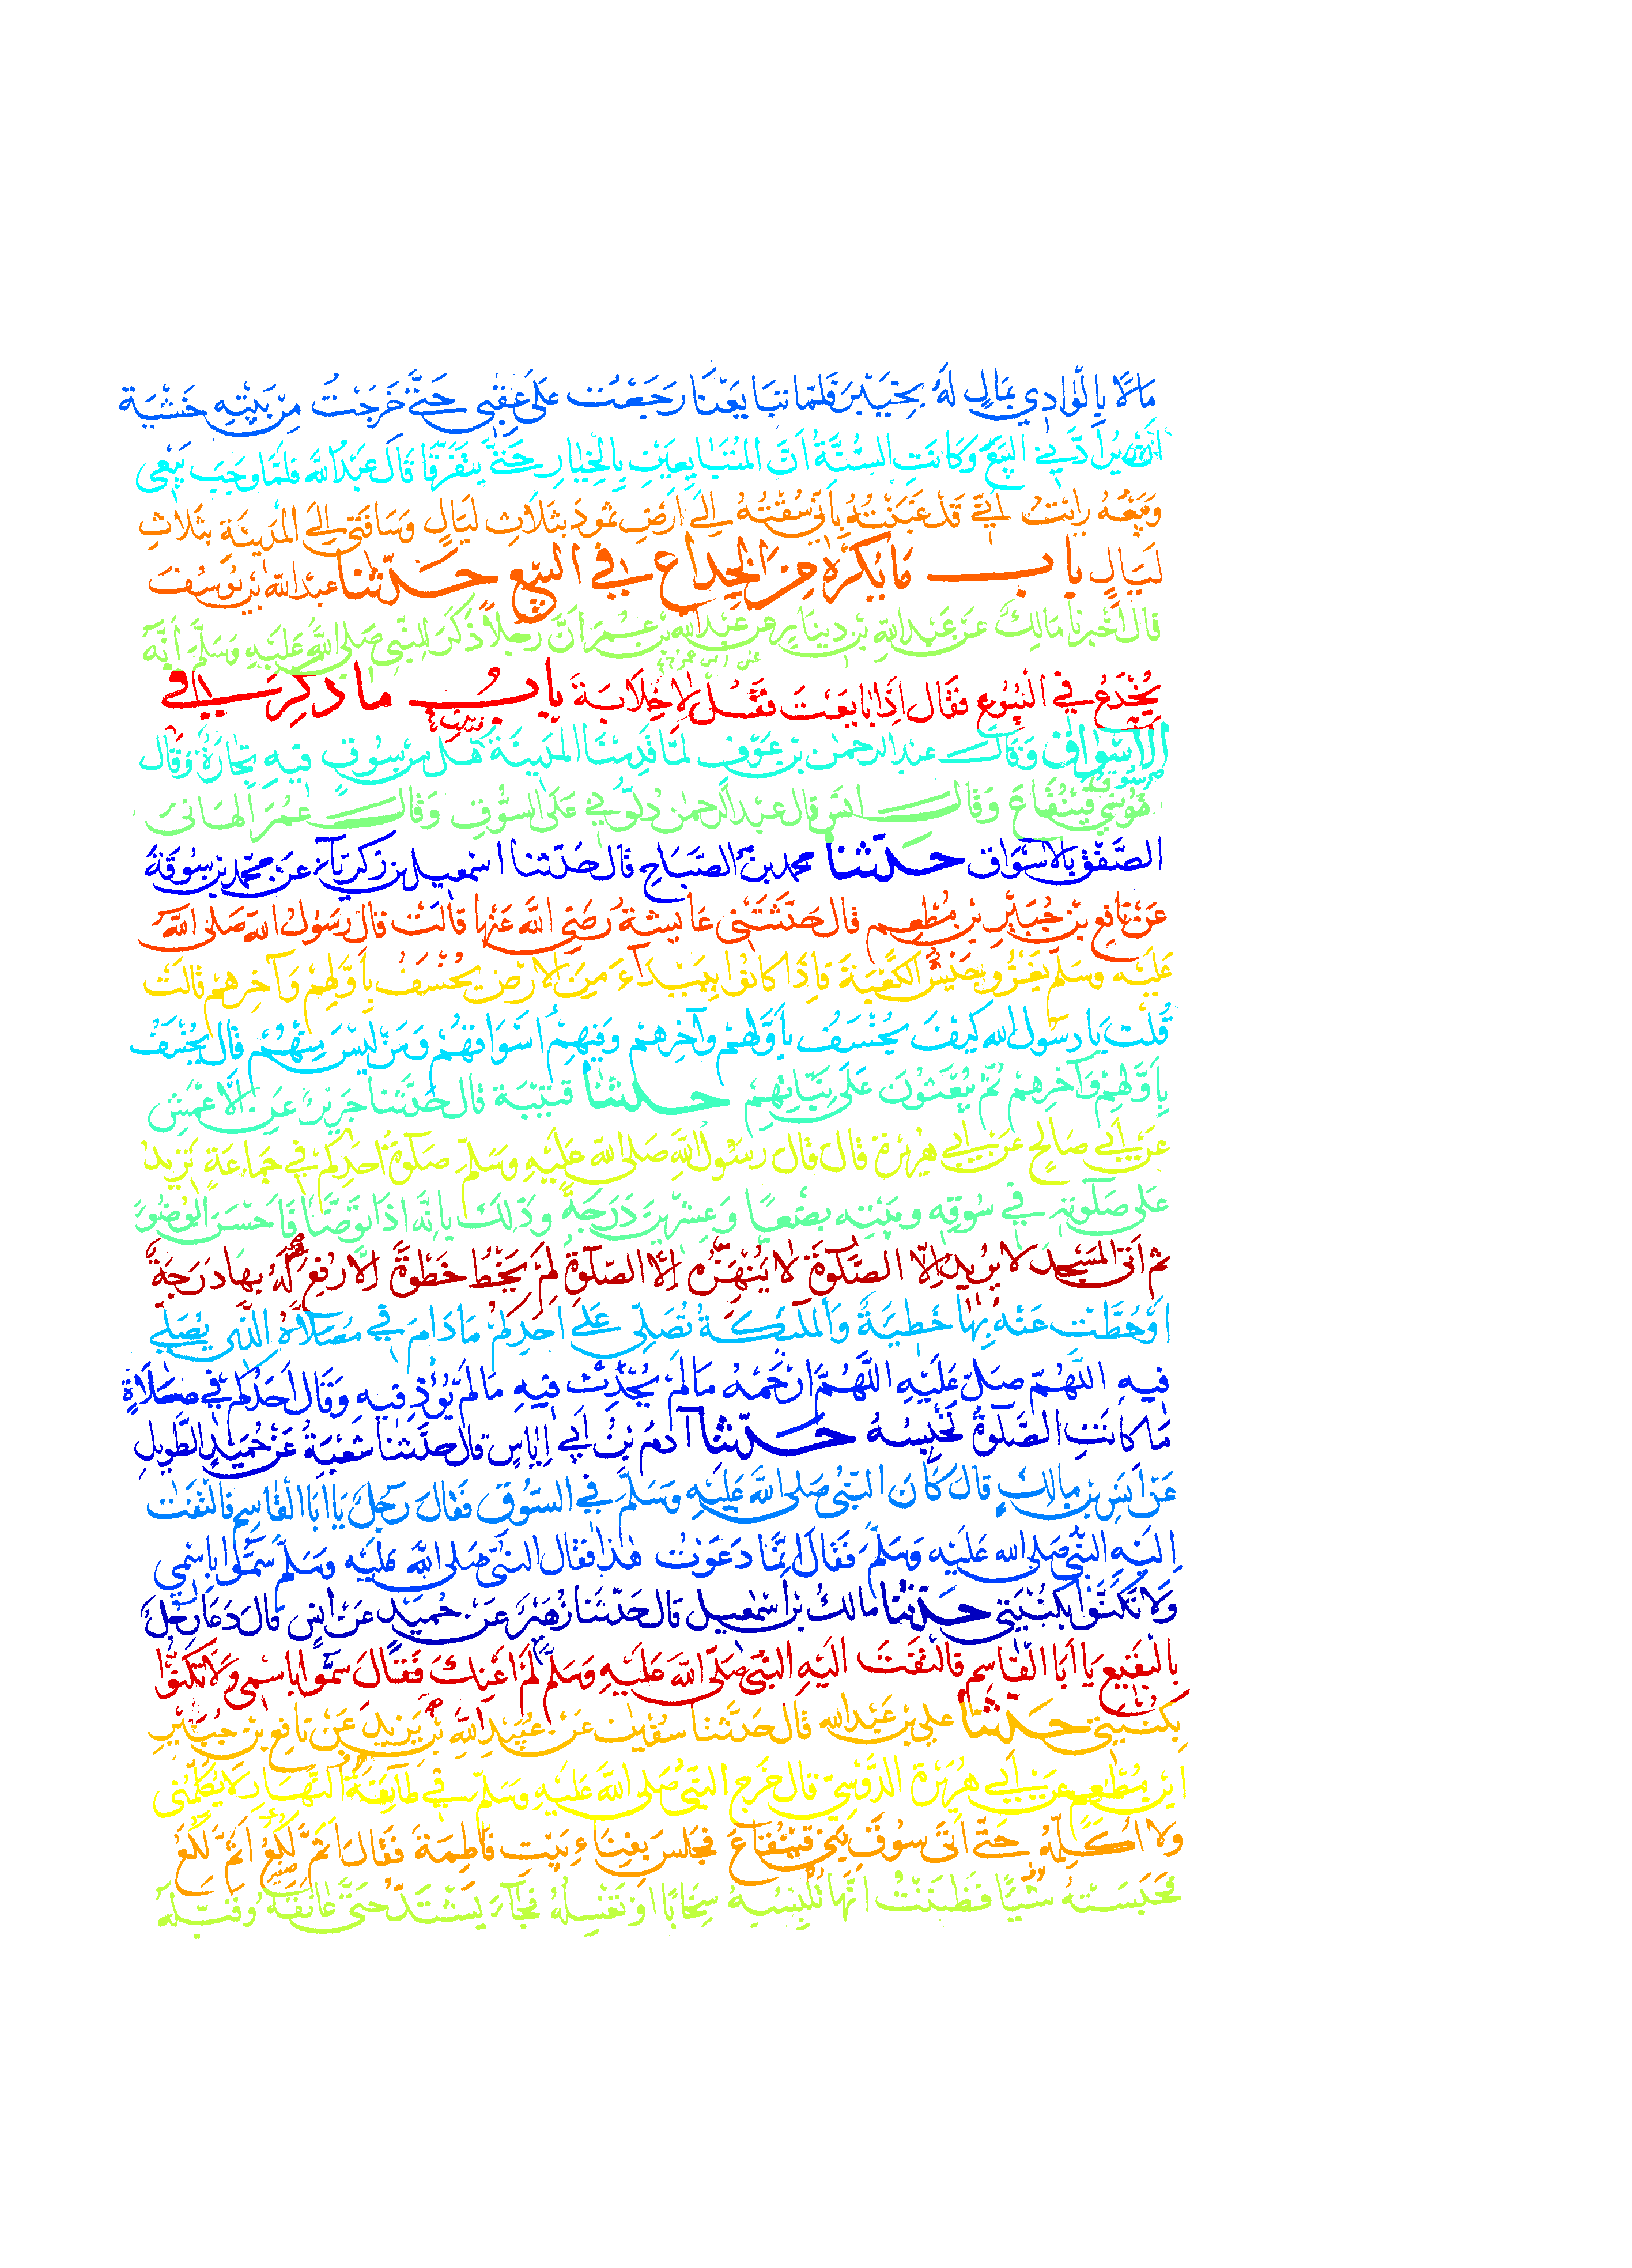 مَالًا بِالْوَادِي بِمَالٍ لَهُ بِخَيْبَرَ فَلَمَّا تَبَايَعْنَا رَجَعْتُ عَلَى عَقِبِي حَتَّى خَرَجْتُ مِنْ بَيْتِهِ خَشْيَةَ
أَنْ يُرَادَّنِي الْبَيْعَ وَكَانَتِ السُّنَّةُ أَنَّ الْمُتَبَايِعَيْنِ بِالْخِيَارِ حَتَّى يَتَفَرَّقَا قَالَ عَبْدُ اللَّهِ فَلَمَّا وَجَبَ بَيْعِي
وَبَيْعُهُ رَأَيْتُ أَنِّي قَدْ غَبَنْتُهُ بِأَنِّي سُقْتُهُ إِلَى أَرْضِ ثَمُودَ بِثَلَاثِ لَيَالٍ وَسَاقَنِي إِلَى الْمَدِينَةِ بِثَلَاثِ
لَيَالٍ باب مَا يُكْرَهُ مِنَ الْخِدَاعِ فِي الْبَيْعِ حَدَّثَنَا عبد الله بن يُوسُفَ
قال أخبرنا مَالِكٌ عَنْ عَبْدِ اللَّهِ بْنِ دِينَارٍ عَنْ عَبْدِ اللَّهِ بْنِ عُمَرَ أَنَّ رَجُلًا ذَكَرَ لِلنَّبِيِّ صَلَى اللَّهُ عَلَيْهِ وَسَلَّمَ أَنَّهُ
يُخْدَعُ فِي الْبُيُوعِ فَقَالَ إِذَا بَايَعْتَ فَقُلْ لَا خِلَابَةَ بابُ ما ذُكِرَ في
الْأَسْوَاقِ وَقَالَ عبد الرحمن بن عَوْفٍ لَمَّا قَدِمْنَا الْمَدِينَةَ هَلْ مِنْ سُوقٍ فِيهِ تِجَارَةٌ وَقَالَ
سُوقُ قَيْنُقَاعَ وَقَالَ انس قال عبد الرحمن دُلُّونِي عَلَى السُّوقِ وَقَالَ عُمَرُ أَلْهَانِي
الصَّفْقُ بِالْأَسْوَاقِ حَدَّثَنَا محمد بن الصَّبَّاحِ قال حَدَّثَنَا اسْمعيل بن زَكَرِيَّاءَ عَنْ مُحَمَّدِ بْنِ سُوقَةَ
عَنْ نَافِعِ بْنِ جُبَيْرِ بْنِ مُطْعِمٍ قال حَدَّثَتْنِي عَائِشَةُ رَضِيَ اللَّهُ عَنْهَا قَالَتْ قَالَ رَسُولُ اللهِ صَلى اللَّهُ
عَلَيْهِ وَسَلَّمَ يَغْزُو جَيْشٌ الْكَعْبَةَ فَإِذَا كَانُوا بِبَيْدَاءَ مِنَ الْأَرْضِ يُخْسَفُ بِأَوَّلِهِمْ وَآخِرِهِمْ قَالَتْ
قُلْتُ يَا رَسُولَ اللهِ كَيْفَ يُخْسَفُ بِأَوَّلِهِمْ وَآخِرِهِمْ وَفِيهِمْ أَسْوَاقُهُمْ وَمَنْ لَيْسَ مِنْهُمْ قَالَ يُخْسَفُ
بِأَوَّلِهِمْ وَآخِرِهِمْ ثُمَّ يُبْعَثُونَ عَلَى نِيَّاتِهِمْ حدثنا قُتَيْبَةُ قال حَدَّثَنَا جَرِيرٌ عَنِ الْأَعْمَشِ
عَنْ أَبِي صَالِحٍ عَنْ أَبِي هُرَيْرَةَ قَالَ قَالَ رَسُولُ اللَّهِ صَلى اللهُ عَلَيْهِ وَسَلَّمَ صَلَوةُ أَحَدِكُمْ فِي جَمَاعَةٍ تَزِيدُ
عَلَى صَلَوتِهِ فِي سُوقِهِ وَبَيْتِهِ بِضْعًا وَعِشْرِينَ دَرَجَةً وَذَلِكَ بِأَنَّهُ إِذَا تَوَضَّأَ فَأَحْسَنَ الْوُضُوءَ
ثم أَتَى الْمَسْجِدَ لَا يُرِيدُ إِلَّا الصَّلَوةَ لَا يَنْهَزُهُ إِلَّا الصَّلَوةُ لَمْ يَخْطُ خَطْوَةً إِلَّا رُفِعَ لَهُ بِهَا دَرَجَةً
أَوْ حُطَّتْ عَنْهُ بِهَا خَطِيئَةٌ وَالْمَلَئِكَةُ تُصَلِّي عَلَى أَحَدِكُمْ مَا دَامَ فِي مُصَلَّاهُ الَّذِي يُصَلِّي
فِيهِ اللَّهُمَّ صَلِّ عَلَيْهِ اللَّهُمَّ ارْحَمْهُ مَا لَمْ يُحْدِثْ فِيهِ مَا لَمْ يُؤْذِ فِيهِ وَقَالَ أَحَدُكُمْ فِي صَلَاةٍ
مَا كَانَتِ الصَّلَوةُ تَحْبِسُهُ حَدَّثَنَا آدَمُ بْنُ أَبِي إِيَاسٍ قال حَدَّثَنَا شُعْبَةُ عَنْ حُمَيْدٍ الطَّوِيلِ
عَنْ أَنَسِ بْنِ مَالِكٍ قَالَ كَانَ النَّبِيُّ صَلى اللَّهُ عَلَيْهِ وَسَلَّمَ فِي السُّوقِ فَقَالَ رَجُلٌ يَا أَبَا الْقَاسِمِ فَالْتَفَتَ
إِلَيْهِ النَّبِيُّ صَلى الله عَلَيْهِ وَسَلَّمَ فَقَالَ إِنَّمَا دَعَوْتُ هَذَا فَقَالَ النَّبِيُّ صَلى اللَّهُ عَلَيْهِ وَسَلَّمَ سَمُّوا بِاسْمِي
وَلَا تَكَنَّوْا بِكُنْيَتِي حَدَّثَنَا مَالِكُ بْنُ اسْمعيل قال حَدَّثَنَا زُهَيْرٌ عَنْ حُمَيْدٍ عَنْ أَنَسٍ قَالَ دَعَا رَجُلٌ
بِالْبَقِيعِ يَا أَبَا الْقَاسِمِ فَالْتَفَتَ إِلَيْهِ النَّبِيُّ صَلَّى اللَّهُ عَلَيْهِ وَسَلَّمَ لَمْ أَعْنِكَ فَقَالَ سَمُّوا بِاسْمِي وَلَا تَكَنَّوْا
بِكُنْيَتِي حَدَّثَنَا علي بن عَبْدِ الله قال حَدَّثَنَا سُفْيَانُ عَنْ عُبَيْدِ اللَّهِ بْنِ يَزِيدَ عَنْ نَافِعِ بْنِ جُبَيْرِ
ابْنِ مُطْعِمٍ عَنْ أَبِي هُرَيْرَةَ الدَّوْسِيِّ قال خَرَجَ النَّبِيُّ صَلى اللَّهُ عَلَيْهِ وَسَلَّمَ فِي طَائِفَةِ النَّهَارِ لَا يُكَلِّمُنِي
وَلَا أُكَلِّمُهُ حَتَّى أَتَى سُوقَ بَنِي قَيْنُقَاعَ فَجَلَسَ بِفِنَاءِ بَيْتِ فَاطِمَةَ فَقَالَ أَثَمَّ لُكَعُ أَثَمَّ لُكَعُ
فَحَبَسَتْهُ شَيْئًا فَظَنَنْتُ أَنَّهَا تُلْبِسُهُ سِخَابًا أَوْ تُغَسِّلُهُ فَجَاءَ يَشْتَدُّ حَتَّى عَانَقَهُ وَقَبَّلَهُ